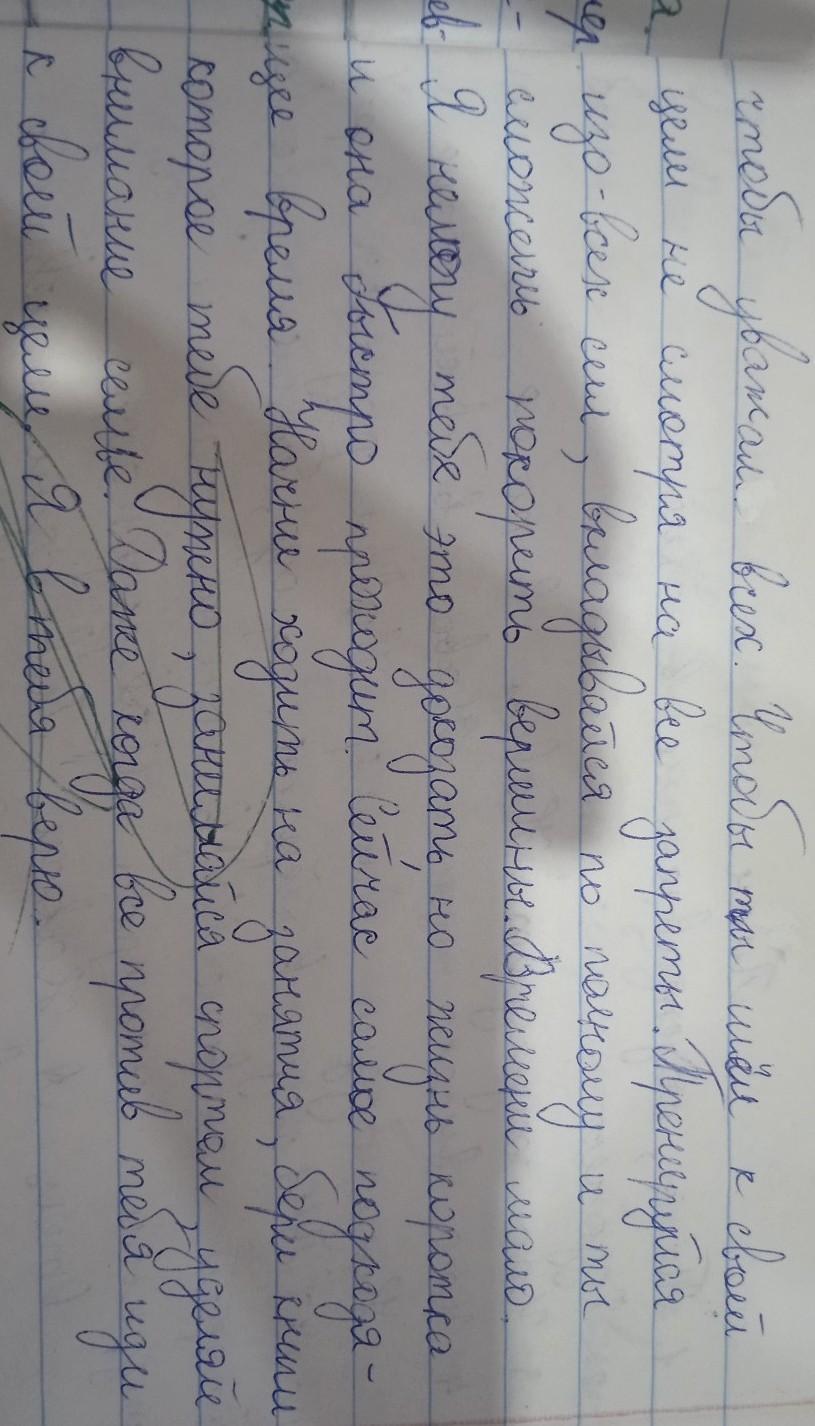 чтобы уважал всех. Чтобы ты шёл к своей
цели не смотря на все запреты. Тренируйся
изо-всех сил, вкладывайся по полному и ты
сможешь покорить вершины. Времени мало.
Я немогу тебе это доказать но жизнь коротка
и она быстро проходит. Сейчас самое подходя-
щее время. Начни ходить на занятия, бери книги
которое тебе нужно, занимайся спортом, уделяй
внимание семье. Даже когда все против тебя иди
к своей цели. Я в тебя верю.